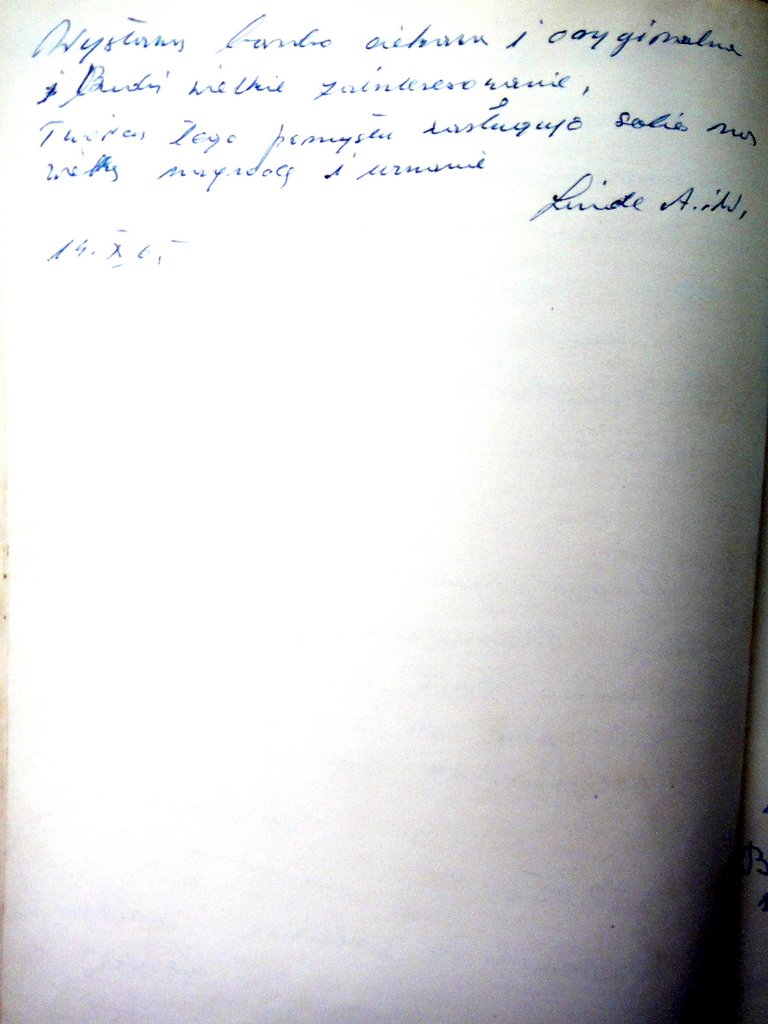 Wystawa bardzo ciekawa i oryginalna
i Budzi wielkie zainteresowanie,
Twórcy tego pomysłu zasługują sobie na
wielką nagrodę i uznanie
Linde A. i W,
14. X 65
B